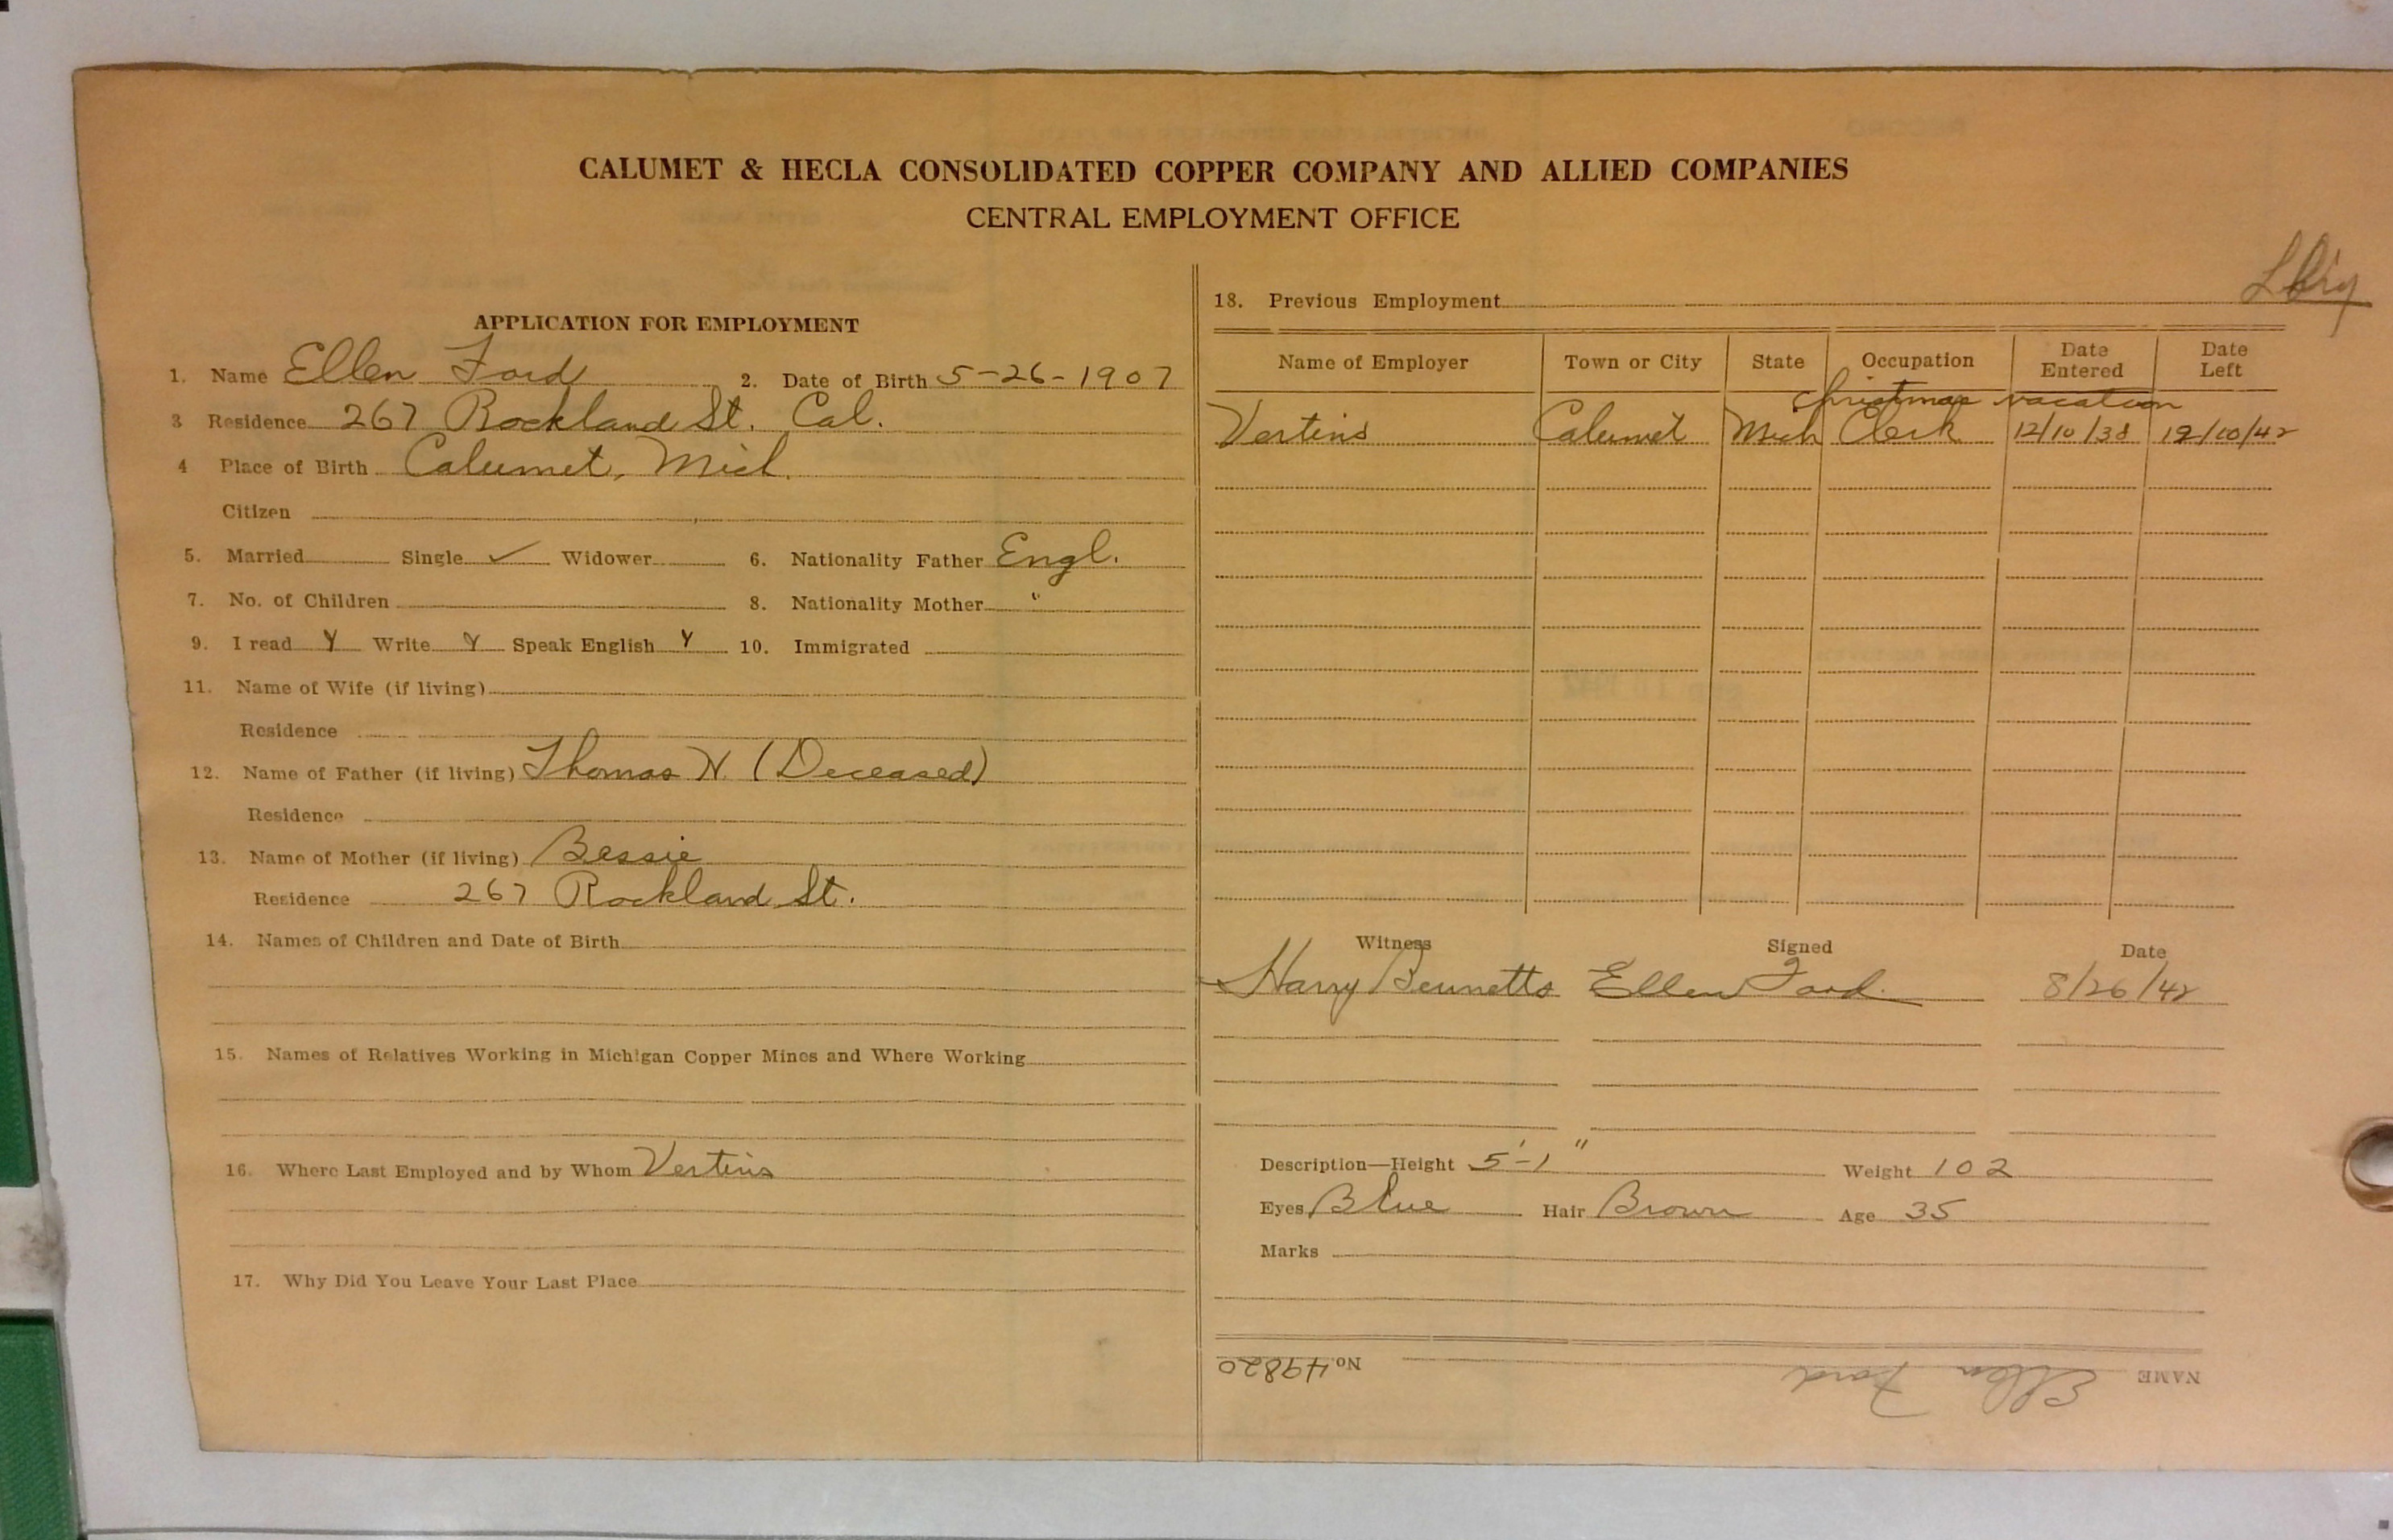 CALUMET & HECLA CONSOLIDATED COPPER COMPANY AND ALLIED COMPANIES
CENTRAL EMPLOYMENT OFFICE
APPLICATION FOR EMPLOYMENT
1. Name Ellen Ford 2. Date of Birth 5-26-1907
3 Residence 267 Rockland St. Cal.
4 Place of Birth Calumet, Mich.
Citizen
5. Married Single ✓ Widower 6. Nationality Father Engl.
7. No. of Children 8. Nationality Mother "
9. I read Y Write Y Speak English Y 10. Immigrated
11. Name of Wife (if living)
Residence
12. Name of Father (if living) Thomas (Deceased)
Residence
13. Name of Mother (if living) Bessie
Residence 267 Rockland St.
14. Names of Children and Date of Birth
15. Names of Relatives Working in Michigan Copper Mines and Where Working
16. Where Last Employed and by Whom Vertins
17. Why Did You Leave Your Last Place
18. Previous Employment
Name of Employer Town or City State Occupation Date Entered Date Left
Christmas vacation
Vertins Calumet Mich Clerk 12/10/38 12/10/42
Witness Signed Date
Harry Bennetts Ellen Ford 8/26/42
Description—Height 5'-1" Weight 102
Eyes Blue Hair Brown Age 35
Marks
NAME Ellen Ford No 49820